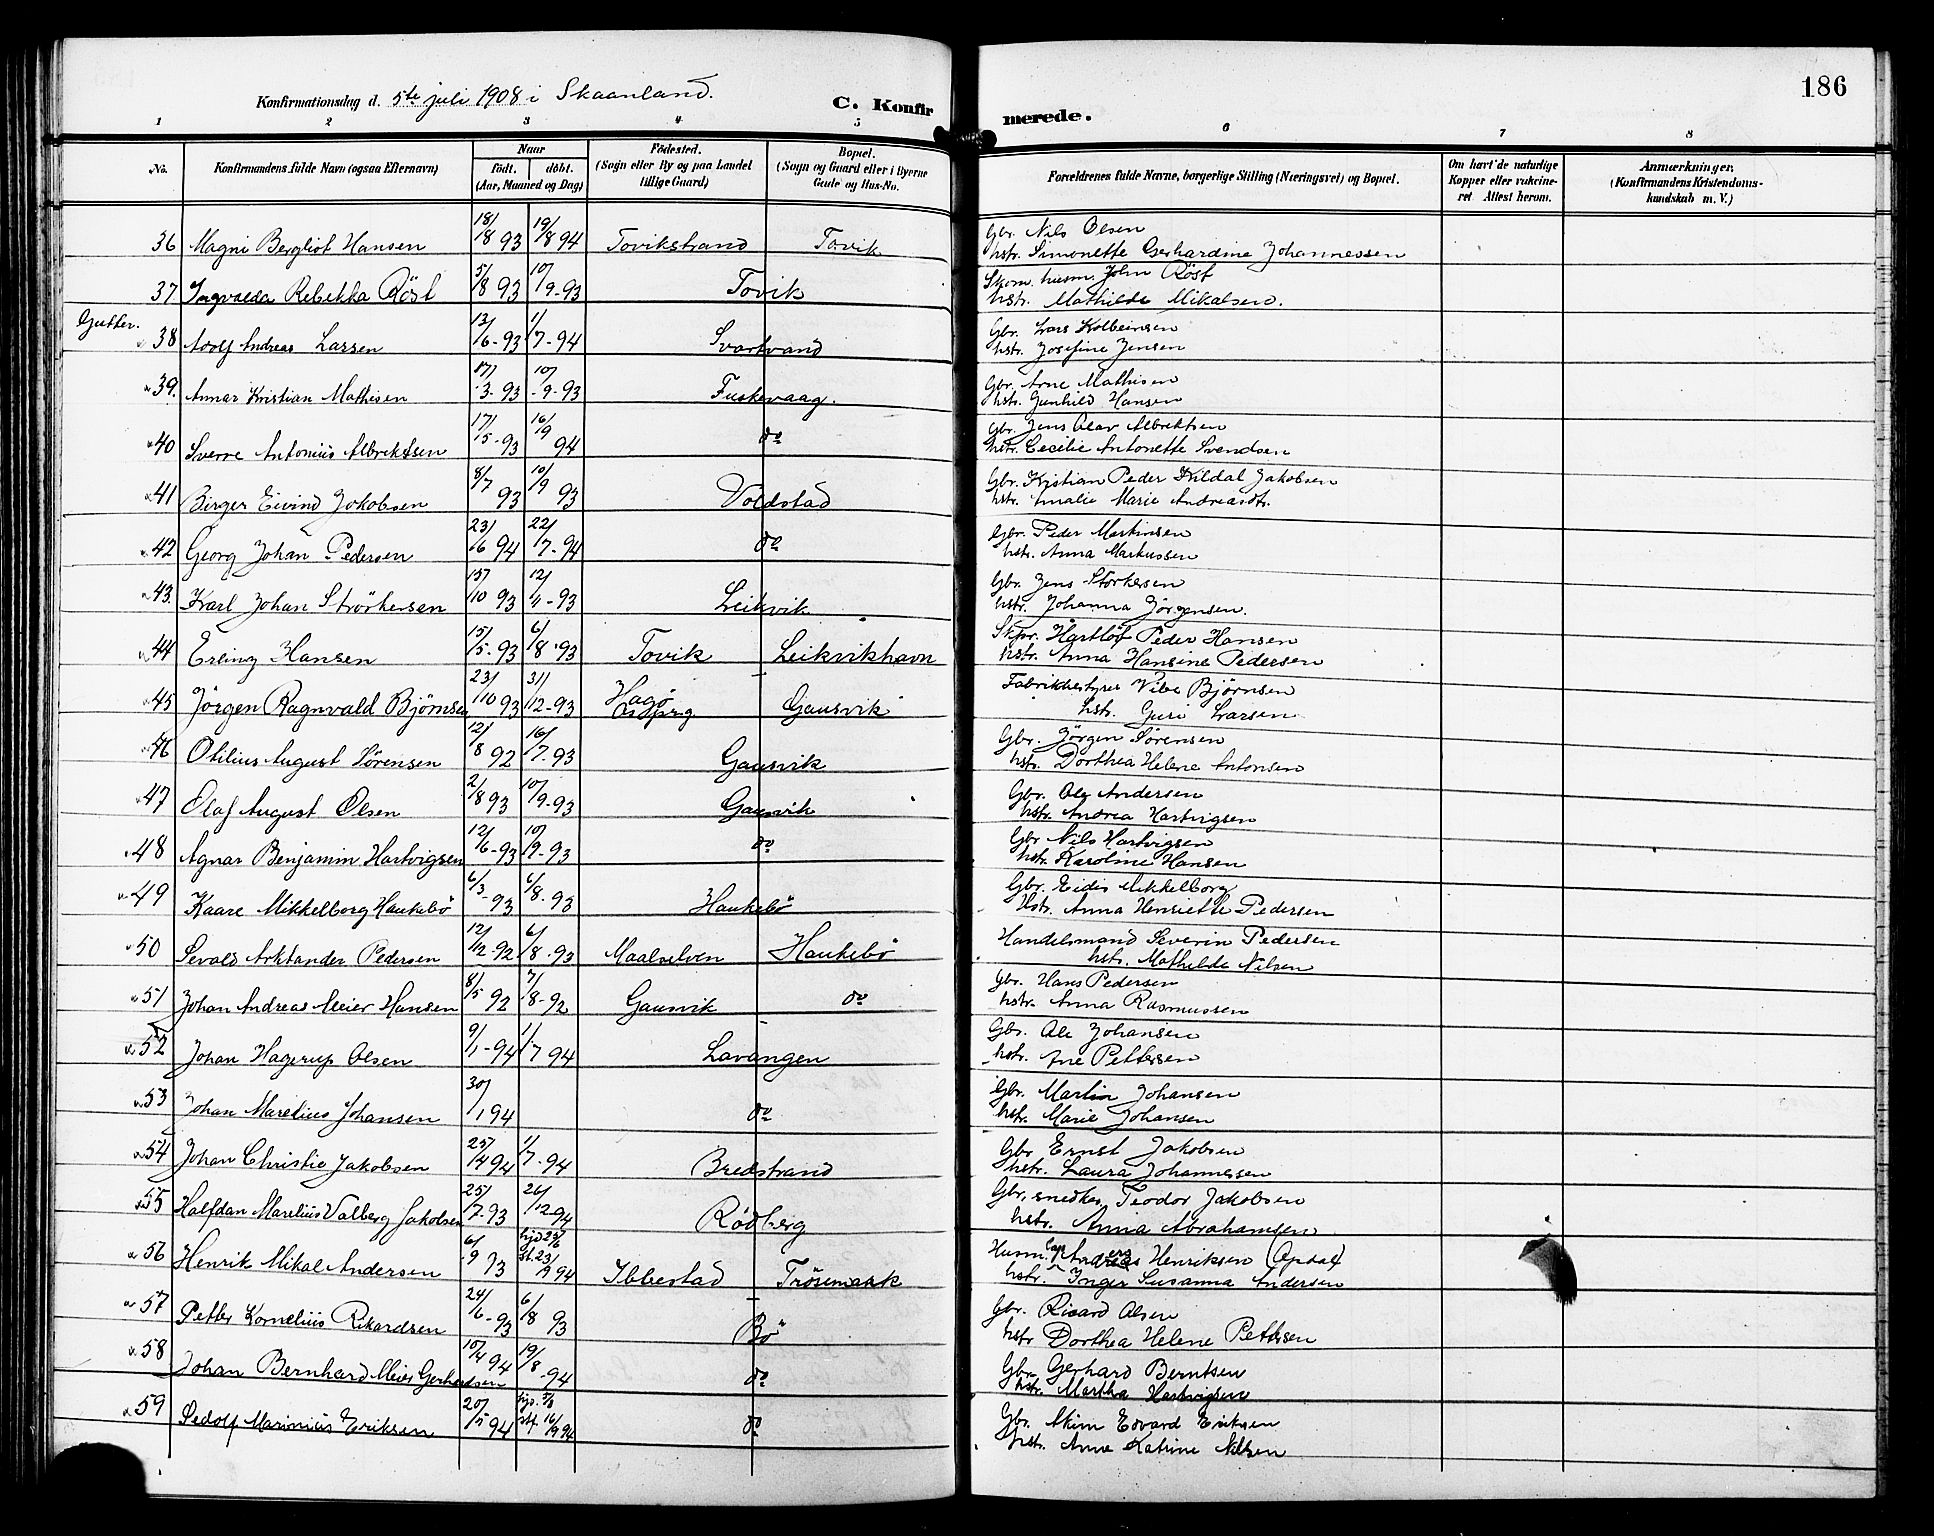 186
Konfirmationsdag d. 5te juli 1908 i Skaanland.
C. Konfirmerede.
1 2 3 4 5 6 7 8
No. Konfirmandens fulde Navn (ogsaa Efternavn) Naar født. døbt. (Aar, Maaned og Dag) Fødested. (Sogn eller By og paa Landet tillige Gaard) Bopæl. (Sogn og Gaard eller i Byerne Gade og Hus-No. Forældrenes fulde Navne, borgerlige Stilling (Næringsvei) og Bopæl. Om havt de naturlige Kopper eller vakcineret Attest herom. Anmærkninger. (Konfirmandens Kristendomskundskab m. V.)
36 Magni Bergliot Hansen 18/8 93 19/8 94 Tovikstrand Tovik Gbr. Nils Olsen
hstr. Simonette Gerhardine Johannessen
37 Ingvalda Rebekka Röst 5/8 93 10/9-93 Tovik Skom. husm. John Röst
hstr. Mathilde Mikalsen.
Gutter.
38 Adolf Andreas Larsen 13/6-93 1/7-94 Svartvand Gbr. Lars Kolbeinsen
hstr. Josefine Jensen
39. Annar Kristian Mathisen 17/3-93 10/9-93 Fuskevaag. Gbr. Arne Mathisen
hstr. Gunhild Hansen
40 Sverre Antonius Albriktsen 17/5-93 16/9 94 do Gbr. Jens Olav Albriktsen
hstr. Cecilie Antonette Svendsen
41 Birger Eivind Jakobsen 8/7 93 10/9 93 Voldstad Gbr. Kristian Peder Kildal Jakobsen
hstr. Amalie Marie Andreasdtr.
42 Georg Johan Pedersen 23/6 94 22/7-94 do Gbr. Peder Martinsen
hstr. Anna Markussen
43. Karl Johan Störkersen 15/10 93 12/11-93 Leikvik Gbr. Jens Störkersen
hstr. Johanna Jörgensen.
44 Erling Hansen 15/5-93 6/8-93 Tovik Leikvikhavn Skpr. Hartlöf Peder Hansen
hstr. Anna Hansine Pedersen
45 Jörgen Ragnvald Bjørnsen 23/10 93 31/12-93 Hagö Gausvik Fabrikbestyrer Vibe Bjørnsen
hstr. Guri Larsen
46 Otilius August Sörensen 12/8 92 16/7-93 Gausvik Gbr. Jörgen Sörensen
hstr. Dorthea Helene Antonsen
47 Olaf August Olsen 2/8 93 10/9-93 Gausvik Gbr. Ole Andersen
hstr. Andrea Hartvigsen
48 Agnar Benjamin Hartvigsen 12/6-93 10/9-93 do Gbr Nils Hartvigsen
hstr. Karoline Hansen
49 Kaare Mikkelborg Haukebö 6/3-93 6/8-93 Haukebö Gbr. Eidis Mikkelborg
Hstr. Anna Henriette Pedersen
50 Sevald Arktander Pedersen 12/12-92 6/8-93 Maalselven Haukebö Handelsmand Severin Pedersen
hstr. Mathilde Nilsen
51 Johan Andreas Meier Hansen 8/5 92 7/8-92 Gausvik do Gbr. Hans Pedersen
hstr. Anna Rasmussen
52 Johan Hagerup Olsen 9/1-94 1/7 94 Lavangen Gbr. Ole Johansen
hstr. Ane Pettersen
53 Johan Marelius Johansen 30/1 94 do Gbr. Martin Johansen
hstr. Marie Johansen
54 Johan Christie Jakobsen 25/4 94 1/7-94 Bredstrand Gbr Ernst Jakobsen
hstr. Laura Johannessen
55 Halfdan Marelius Valberg Jakobsen 25/7-93 26/12-94 Rödberg Gbr, snedker Teodor Jakobsen
hstr. Anna Abrahamsen
56 Henrik Mikal Andersen 6/9 93 hjd 25/6 st. 23/9 94 Ibbestad Trösemark Husm. Anders Henriksen (Opdal)
hstr. Inger Susanna Andersen
57 Petter Kornelius Rikardsen 24/6-93 6/8 93 Bö Gbr. Ricard Olsen
hstr Dorthea Helene Pettersen
58 Johan Bernhard Meier Gerhardsen 10/4 94 19/8-94 do Gbr. Gerhard Berntsen
hstr. Martha Hartvigsen
59 Sedolf Marinius Eriksen 20/5 94 hjd. 5/8 stf. 16/9 94 do Gbr. Akim Edvard Eriksen
hstr. Anna Katrine Nilsen